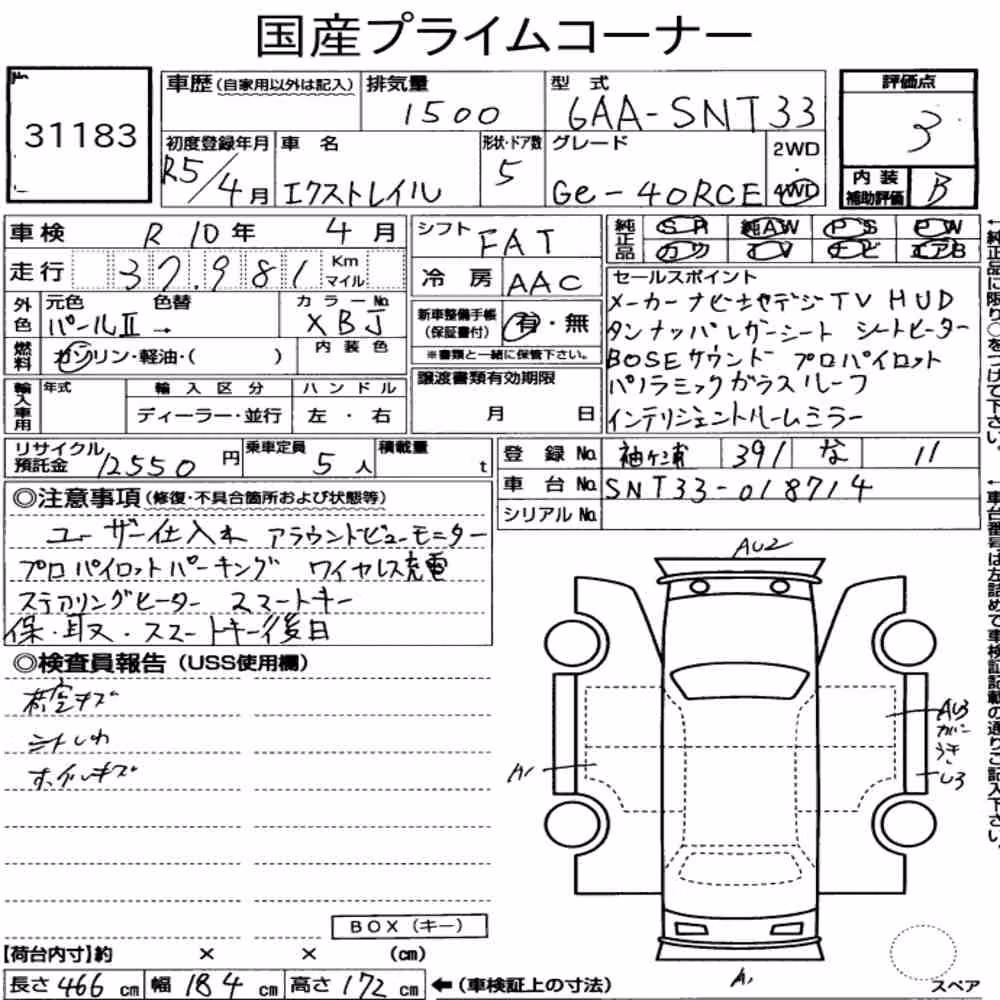 国産プライムコーナー
31183
車歴(自家用以外は記入)
排気量
1500
型式
6AA-SNT33
評価点
3
初度登録年月
R5/4月
車名
エクストレイル
形状・ドア数
5
グレード
Ge-4ORCE
2WD
4WD
内装
補助評価
B
車検 R10年 4月
シフト
FAT
純正品
SR 純AW PS PW
カワ TV ナビ エアB
走行 37,981 Km
マイル
冷房 AAC
セールスポイント
メーカーナビ地デジTV HUD
タンナッパレザーシート シートヒーター
BOSEサウンド プロパイロット
パノラミックガラスルーフ
インテリジェントルームミラー
外色
元色 色替
パールⅡ →
カラーNo.
XBJ
新車整備手帳
(保証書付)
有・無
※書類と一緒に保管下さい。
燃料
ガソリン・軽油・( )
内装色
輸入車用
年式
輸入区分
ディーラー・並行
ハンドル
左・右
譲渡書類有効期限
月 日
リサイクル
預託金
12550円
乗車定員
5人
積載量
t
登録No. 袖ケ浦 391 な 11
車台No. SNT33-018714
シリアルNo.
◎注意事項(修復・不具合箇所および状態等)
ユーザー仕入れ アラウンドビューモニター
プロパイロットパーキング ワイヤレス充電
ステアリングヒーター スマートキー
保・取・スマートキー後日
◎検査員報告(USS使用欄)
キズ
シートしわ
ホイルキズ
AU2
A1
AU3
ガバ
うき
U3
A1
BOX(キー)
【荷台内寸】約 × × (cm)
長さ466cm 幅184cm 高さ172cm ←(車検証上の寸法)
スペア
←純正品に限り○をつけて下さい。
←車台番号は左詰めで車検証記載の通りご記入下さい。